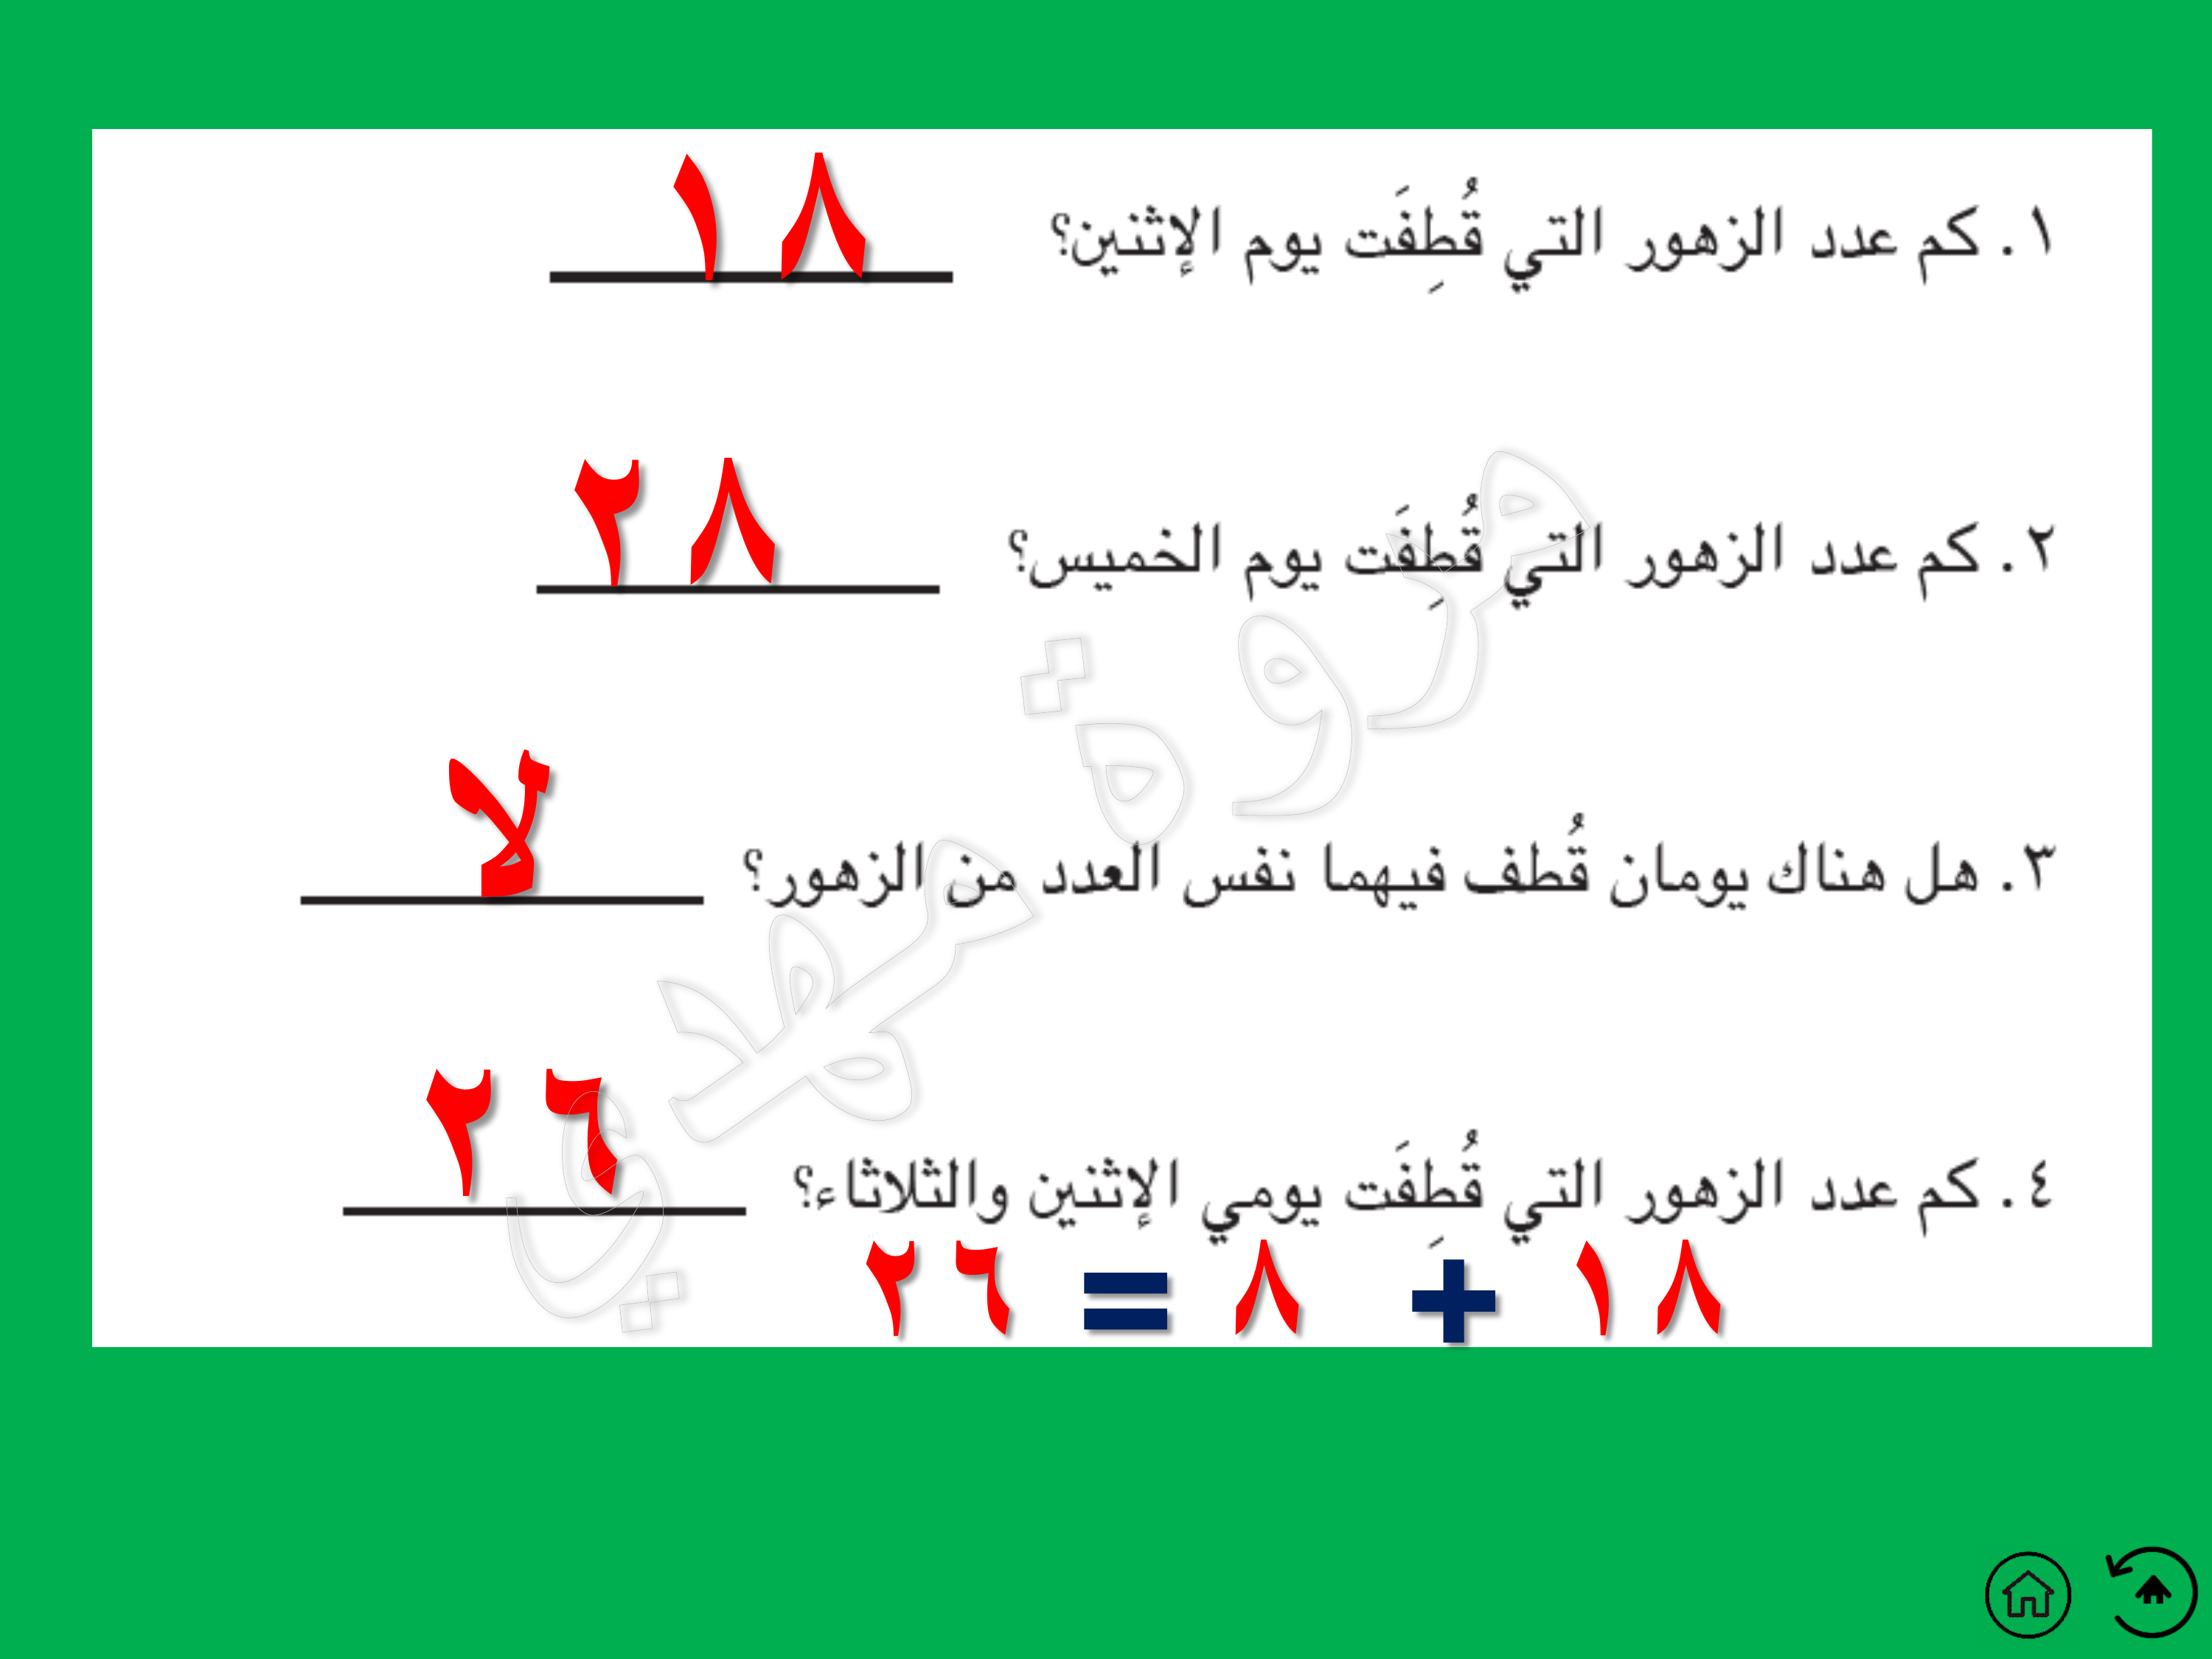 ١. كم عدد الزهور التي قُطِفَت يوم الإثنين؟ ١٨
٢. كم عدد الزهور التي قُطِفَت يوم الخميس؟ ٢٨
٣. هل هناك يومان قُطف فيهما نفس العدد من الزهور؟ لا
٤. كم عدد الزهور التي قُطِفَت يومي الإثنين والثلاثاء؟ ٢٦
١٨ + ٨ = ٢٦
مروة مهدي